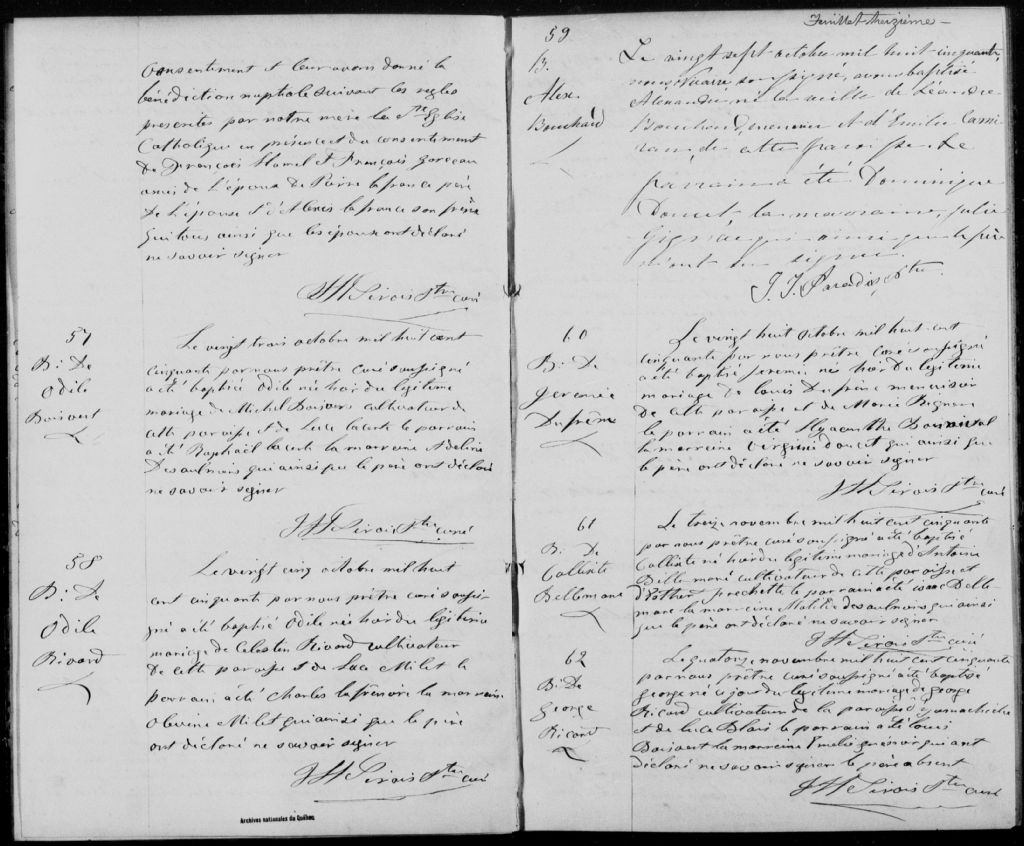 consentement et leur avons donné la
bénédiction nuptiale suivant les regles
prescrites par notre mère la Ste Eglise
Catholique en présence et du consentement
de François et François
amis de l'époux de Pierre lafrance père
de l'épouse et d'Alexis lafrance son frère
qui tous ainsi que les époux ont déclaré
ne savoir signer
JH Sirois Ptre curé
57
B: De
Odile
Boisvert
Le vingt trois octobre mil huit cent
cinquante par nous prêtre curé soussigné
a été baptisé Odile née hier du légitime
mariage de Michel Boisvert cultivateur de
cette paroisse et de Luce Lacerte le parrain
a été Raphaël lacerte la marraine Adeline
Desaulniers qui ainsi que le père ont déclaré
ne savoir signer
JH Sirois Ptre curé
58
B: De
Odile
Rivard
Le vingt cinq octobre mil huit
cent cinquante par nous prêtre curé soussi-
gné a été baptisé Odile née hier du légitime
mariage de Celestin Rivard cultivateur
de cette paroisse et de Luce Milet le
parrain a été Charles lafreniere la marraine
Milet qui ainsi que le père
ont déclaré ne savoir signer
JH Sirois Ptre curé
Archives nationales du Québec
Feuillet treizième
59
B.
Alex.
Bouchard
Le vingt sept octobre mil huit cinquante,
nous soussigné, avons baptisé
Alexandre, né la veille de Leandre
Bouchard, menuisier et d'Emilie
de cette paroisse. Le
parrain a été Dominique
Doucet la marraine Julie
Gignac qui ainsi que le père
n'ont su signer.
J. J. Paradis, Ptre
60
B: De
Jeremie
Dufrêne
Le vingt huit octobre mil huit cent
cinquante par nous prêtre curé soussigné
a été baptisé Jeremie né hier du légitime
mariage de louis Dufrêne menuisier
de cette paroisse et de Marie
le parrain a été Hyacinthe
la marraine Virginie doucet qui ainsi que
le père ont déclaré ne savoir signer
JH Sirois Ptre curé
61
B: De
Callixte
Bellemare
Le treize novembre mil huit cent cinquante
par nous prêtre curé soussigné a été baptisé
Callixte né hier du légitime mariage d'Antoine
Bellemare cultivateur de cette paroisse et
d'Esther frechette le parrain a été isaac Belle-
mare la marraine desaulniers qui ainsi
que le père ont déclaré ne savoir signer
JH Sirois Ptre curé
62
B: De
George
Ricard
Le quatorze novembre mil huit cent cinquante
par nous prêtre curé soussigné a été baptisé
george né ce jour du légitime mariage de george
Ricard cultivateur de la paroisse d'yamachiche
et de luce Blais le parrain a été louis
Boisvert la marraine qui ont
déclaré ne savoir signer le père absent
JH Sirois Ptre curé